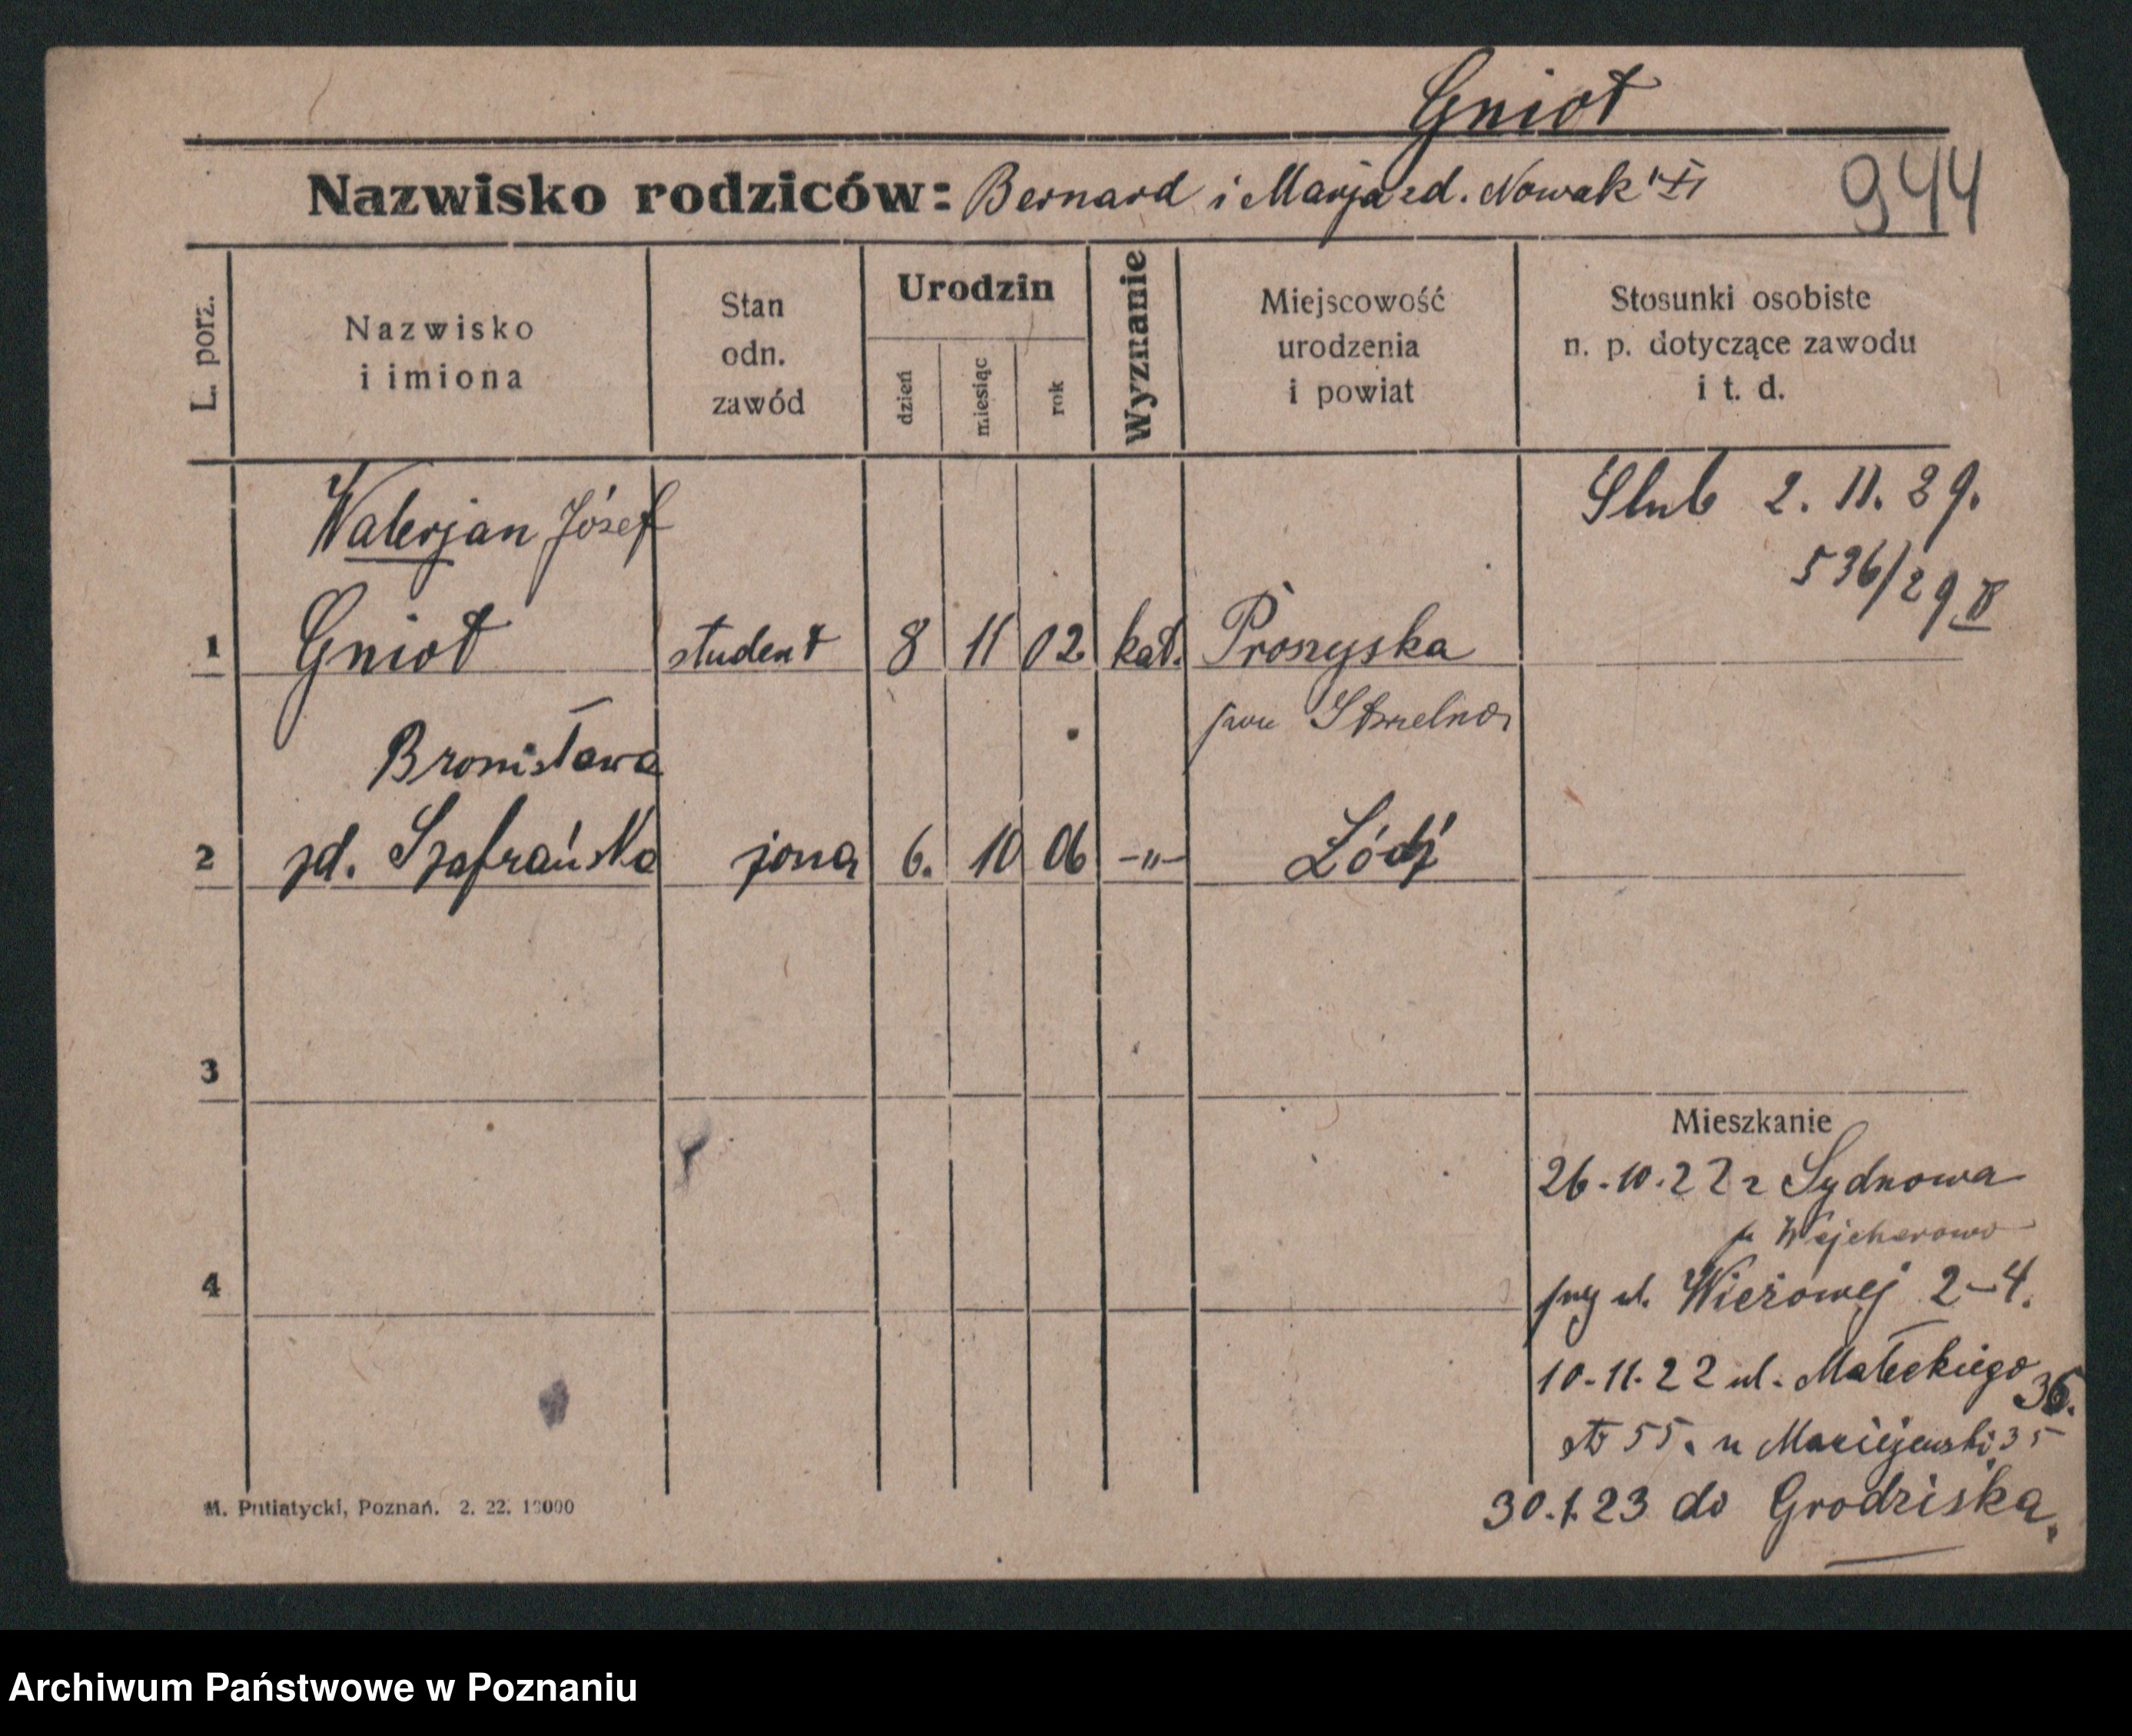 Gniot
Nazwisko rodziców: Bernard i Marja zd. Nowak
944
L. porz.
Nazwisko
i imiona
Stan
odn.
zawód
Urodzin
dzień
miesiąc
rok
Wyznanie
Miejscowość
urodzenia
i powiat
Stosunki osobiste
n. p. dotyczące zawodu
i t. d.
Walerjan Józef
Slub 2. 11. 29.
536/29
1 Gniot student 8 11 02 kat. Proszyska
pow Strzelno
Bronisława
2 zd. Szafrańska żona 6. 10 06 -"- Łódź
3
Mieszkanie
26.10.22 z
p Wejcherowo
4
przy ul. Wieżowej 2-4.
10.11.22 ul. Małeckiego 36.
55. u Maciejewski 35
30.1.23 do Grodziska.
M. Putiatycki, Poznań. 2. 22. 10000
Archiwum Państwowe w Poznaniu